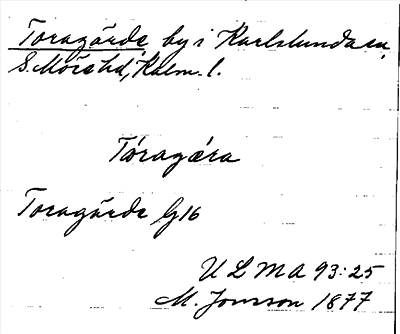 Toragärde, by i Karlslunda sn,
S. Möre hd, Kalm. l.
Tóragæra
Toragärde G16
ULMA 93:25
M. Jonsson 1877